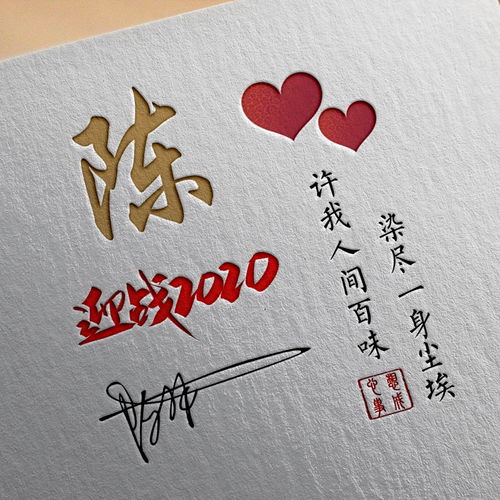 陈
迎战2020
染尽一身尘埃
许我人间百味
心想
事成